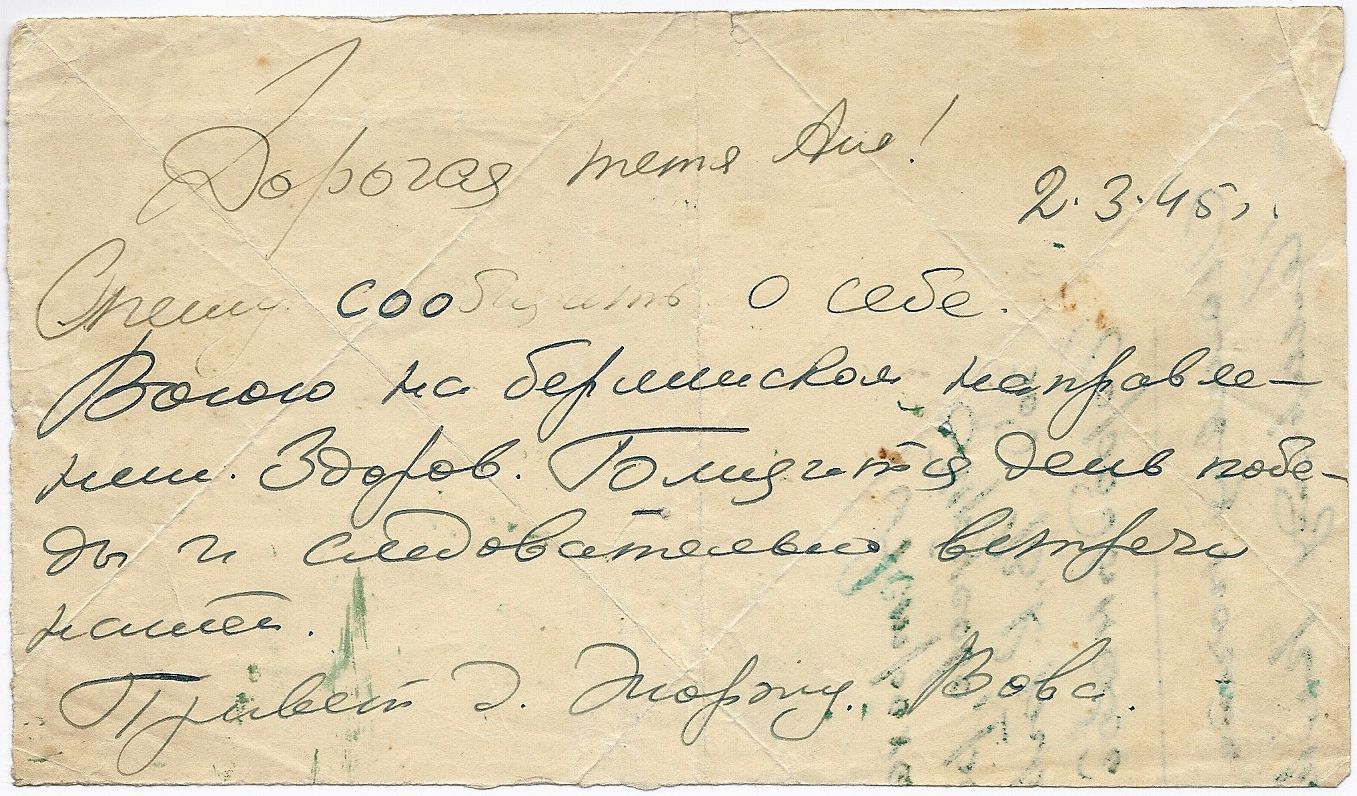 Дорогая тетя Аня!
2.3.45 г.
Спешу сообщить о себе.
Воюю на берлинском направле-
нии. Здоров. Близится день побе-
ды и следовательно встречи
нашей.
Привет д. Жоржу. Вова.